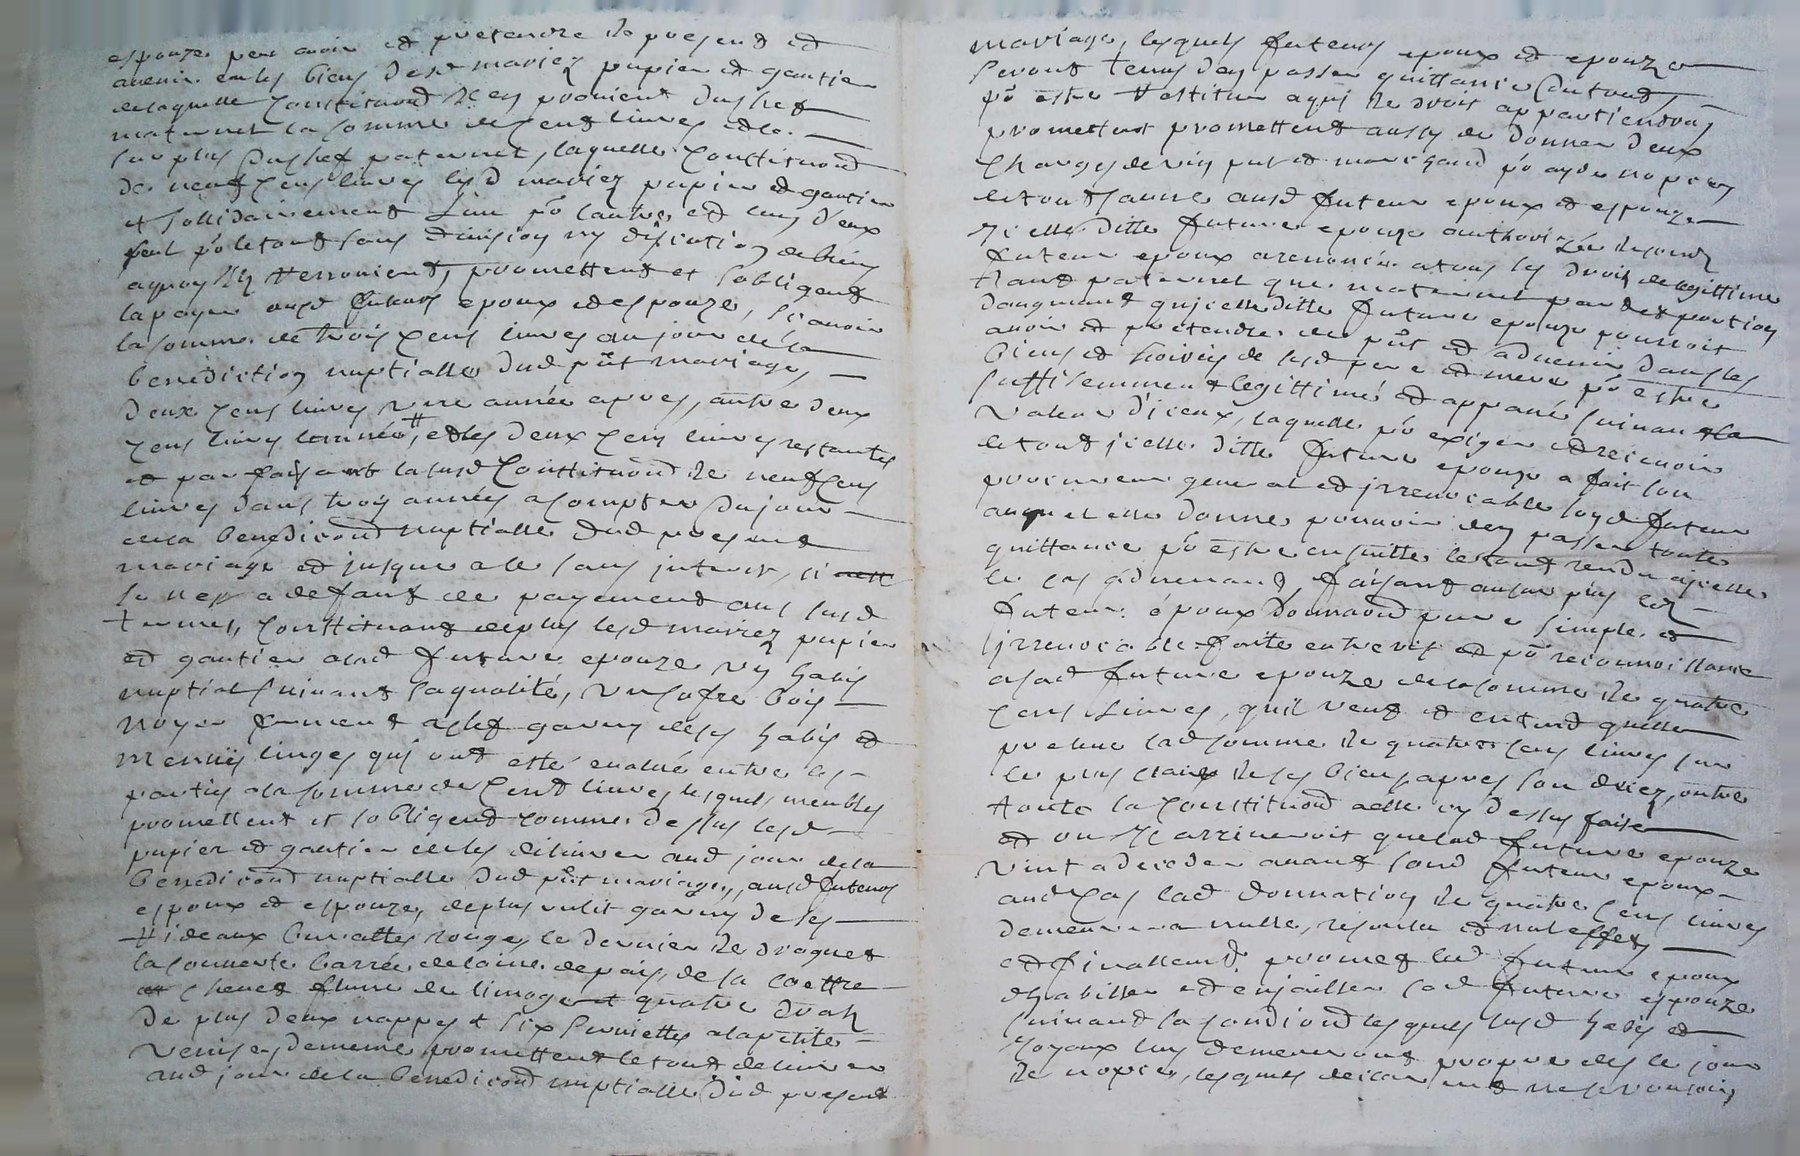 espouze peut avoir et pretendre de present et
avenir en les biens desd mariez papier et gautier
de laquelle constituond il en provient du chef
maternel la somme de cent livres et le
surplus du chef paternel, laquelle constituond
de neuf cens livres lesd mariez papier et gautier
et sollidairement l'un po lautre et luy deux
seul po le tout sans division ny discution de biens
a quoy ilz renoncient, promettent et sobligent
la payer ausd futurs epoux et espouze, scavoir
la somme de trois cens livres au jour de la
benediction nuptialle dud pnt mariage,
deux cens livres une année apres, autre deux
cens livres lannée, et les deux cens livres restantes
et parfaisant la susd constituond de neuf cens
livres dans trois années a compter du jour
de la benedicond nuptialle dud present
mariage et jusque a le sans interest, si
ce nest a defaut de payement aus susd
termes, constituant de plus lesd mariez papier
et gautier a lad future epouze un habit
nuptial suivant sa qualité, un cofre bois
noyer fermant a clef garny de ses habis et
menus linges qui ont esté evalué entre les
parties a la somme de cent livres, lesquels meubles
promettent et sobligent comme dessus lesd
papier et gautier de les delivrer aud jour de la
benedicond nuptialle dud pnt mariage, ausd futurs
espoux et espouze, de plus un lit garny de ses
rideaux burattes rouge, le dernier de droguet
la couverte barrée de laine de pais, de la coettre
chevet plume de limoge et quatre drah
de plus deux nappes et six serviettes a la petite
venise, de meme promettent le tout delivrer
aud jour de la benedicond nuptialle dud present
mariage, lesquels futurs epoux et epouze
seront tenus den passer quittance du tout,
po estre restitue a qui de droit appartiendra,
promettent aussy de donner deux
charges de vin pur et marchand po ayde nopces
le tout sauve ausd futurs epoux et espouze
icelle ditte future epouze authorizée de sond
futeur epoux a renoncée a tous les droits de legittime
tant paternel que maternel part et portion
daugment qu'icelle ditte future epouze pourroit
avoir et pretendre de pnt et advenir dans les
biens et hoiries de sesd pere et mere po estre
suffisemment legittimé et appané suivant la
valeur d'iceux, laquelle po exiger et recevoir
le tout icelle ditte future epouze a fait son
procureur general et irrevocable sond futeur
auquel elle donne pouvoir den passer toute
quittance po estre ensuitte le tout rendu a icelle
le cas advenant, faisant
futeur epoux donnaond pure simple et
irrevocable faite entre vifs et po reconnoissance
a lad future epouze de la somme de quatre
cens livres, quil veut et entend quelle
prelue lad somme de quatre cens livres sur
le plus clair de ses biens apres son decez, outre
toute la constituond a elle cy dessus faite
et ou il arriveroit que lad future epouze
vint a deceder avant sond futeur epoux
aud cas lad donnation de quatre cens livres
demeurera nulle, resolue et nul effet
et finallemt promet led futeur epoux
dhabiller et enjoailler sad future espouze
suivant sa condiond lesquels susd habis et
joyaux luy demeureront propre des le jour
de nopces, lesquels